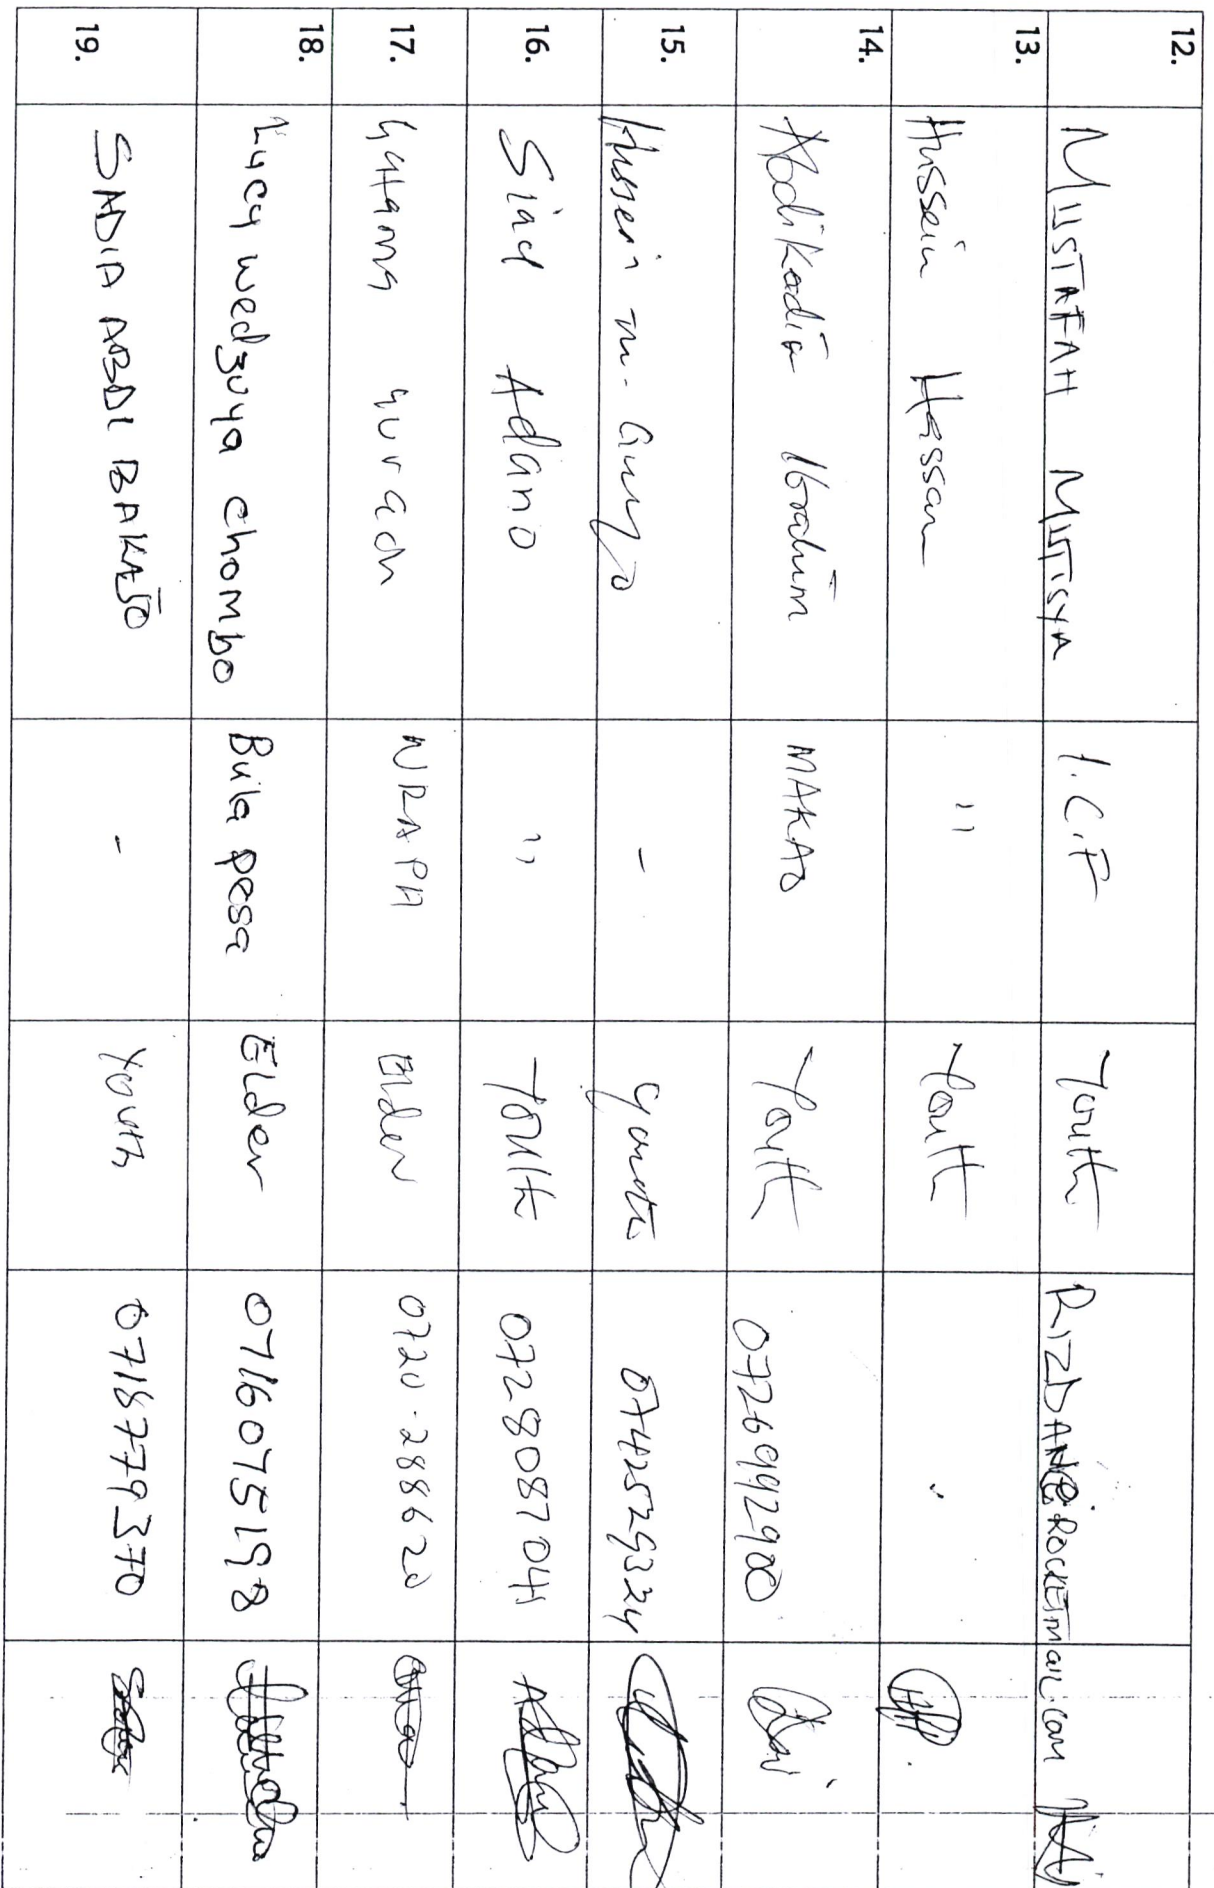 12. MUSTAFAH MUTISYA I.C.F Youth RIZDANE@ROCKETMAIL.COM
13. Hussein Hassan " Youth
14. Abdikadir Ibrahim MAKAO Youth 0726992900
15. Hussein m. Guyo - youth 0742529324
16. Siad Adano " Youth 0728087041
17. NRAPH Elder 0720-288620
18. Lucy wedzuya chombo Bula pesa Elder 0716075198
19. SADIA ABDI BAKAJO - Youth 0718779370